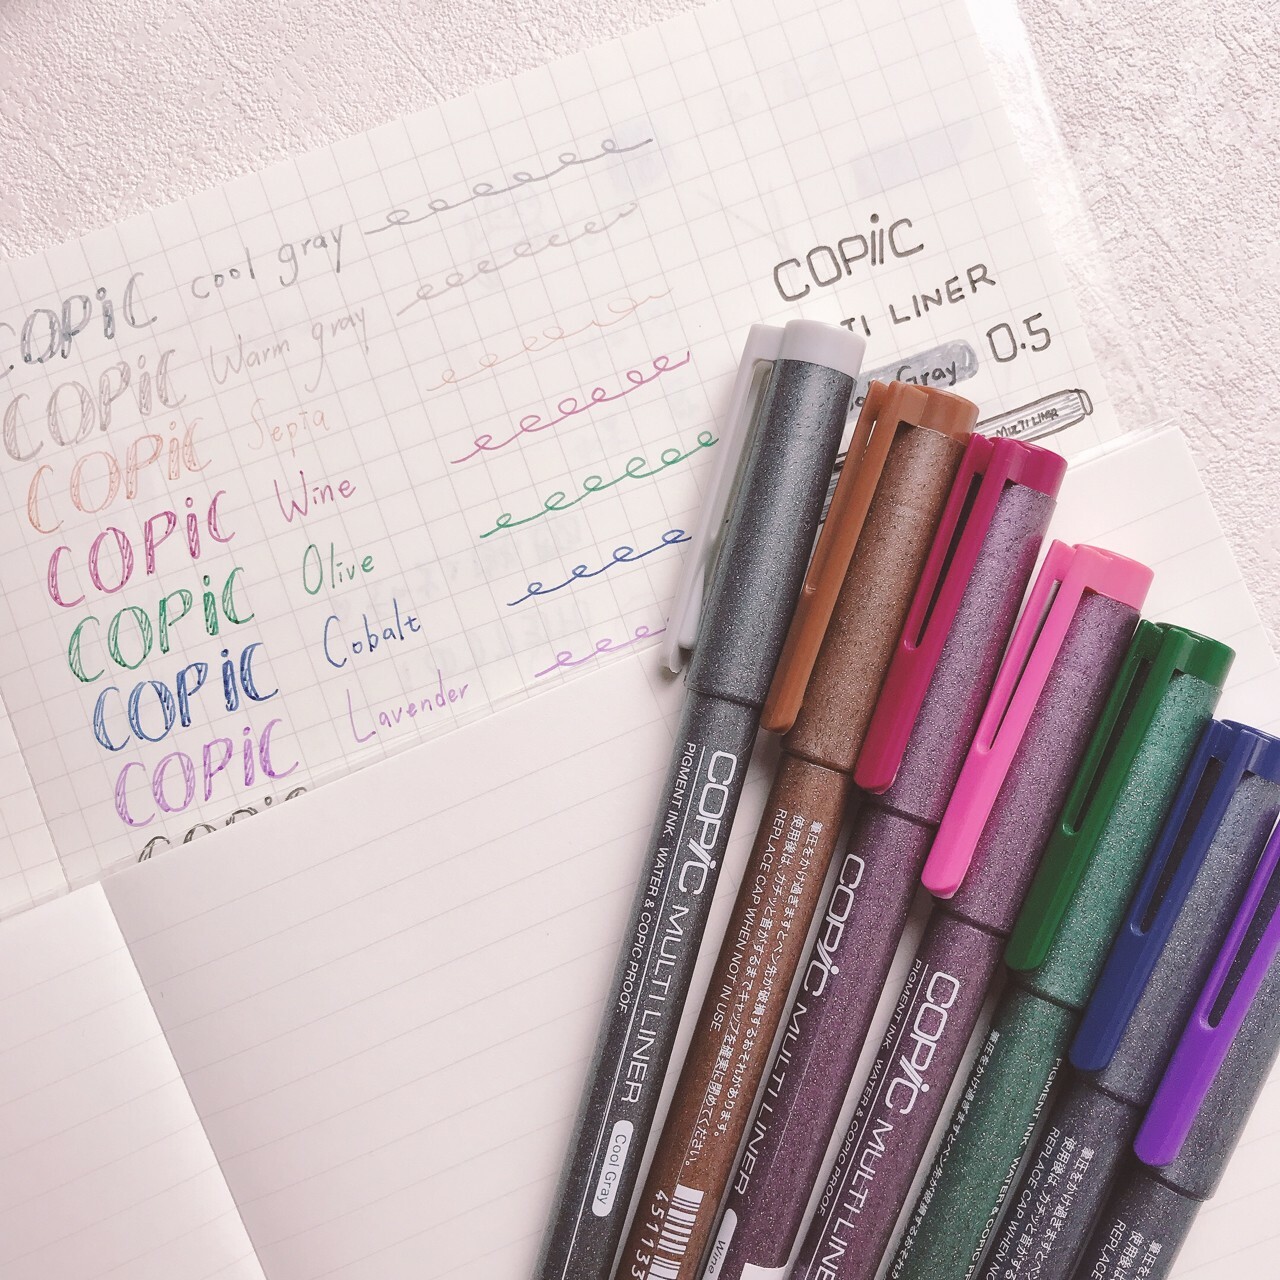 COPiC cool gray
COPiC Warm gray
COPiC Sepia
COPiC Wine
COPiC Olive
COPiC Cobalt
COPiC Lavender
COPiC
COPiiC
TI LINER
Gray 0.5
MULTI LINER
COPiC MULTI LINER Cool Gray
PIGMENT INK WATER & COPIC PROOF.
筆圧をかけ過ぎますとペン先が破損するおそれがあります。
使用後は、カチッと音がするまでキャップを確実に閉めてください。
REPLACE CAP WHEN NOT IN USE.
45133
COPiC MULTI LINER Wine
COPiC MULTI LINER
PIGMENT INK WATER & COPIC PROOF
PIGMENT INK WATER & COPIC PRO
筆圧をかけ過ぎますとペン先が破損するおそれが
筆圧をかけ過ぎますと
使用後は、カチッと音がする
REPLACE CAP WHEN NO
筆圧をか
使用後は
REPLACE